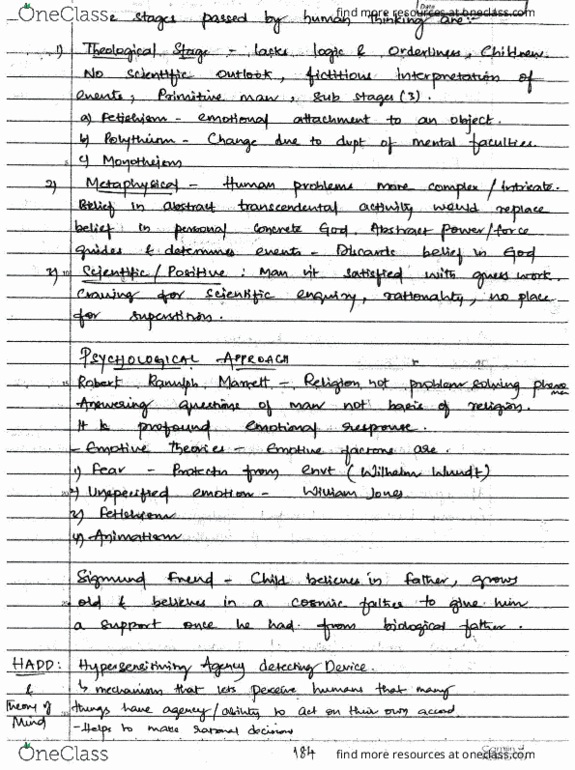 OneClass find more resources at oneclass.com
Date
e stages passed by human thinking are:-
1) Theological Stage - lacks logic & orderliness, Children
No scientific outlook, fictitious interpretation of
events, Primitive man, sub stages (3).
a) Fetishism - emotional attachment to an object.
b) Polythism - Change due to dvpt of mental faculties.
c) Monotheism
2) Metaphysical - Human problems more complex / intricate.
Belief in abstract transcendental activity would replace
belief in personal concrete God. Abstract power/force
guides & determines events - Discards belief in God
Scientific / Positive : Man n't satisfied with guess work.
Craving for scientific enquiry, rationality, no place
for superstition.
PSYCHOLOGICAL APPROACH
Robert Ranulph Marrett - Religion not problem solving pheno
men
Answering questions of man not basis of religion.
It is profound emotional response.
- Emotive Theories - Emotive factors are.
1) Fear - Protectn from envt (Wilhelm Wundt)
2) Unspecified emotion - William Jones
3) Fetishism
4) Animatism
Sigmund Freud - Child believes in father, grows
old & believes in a cosmic father to give him
a support once he had from biological father.
HADD: Hypersensitivity Agency detecting Device.
& ↳ mechanism that lets perceive humans that many
Theory of things have agency/ability to act on their own accord
Mind - Helps to make rational decisions
OneClass 184 find more resources at oneclass.com